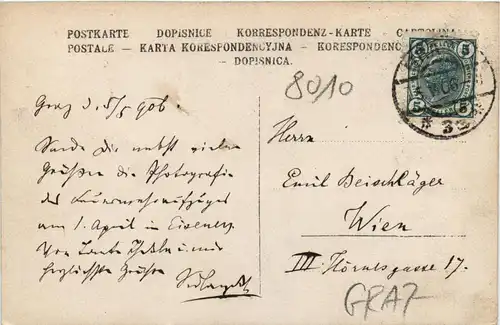 POSTKARTE DOPISNICE KORRESPONDENZ-KARTE CARTOLINA
POSTALE — KARTA KORESPONDENCYJNA — KORESPONDENC
— DOPISNICA.
5 5
5 5
06
* 33 *
8010
Graz d. 5/5 906.
Sende Dir nebst vielen
Grüßen die Photografie
des Feuerwehraufzuges
am 1. April in Eisenerz.
Von Tante Thekla u. uns
herzlichste Grüße
Herrn
Emil Beischläger
Wien
III Hörnesgasse 17.
GRAZ